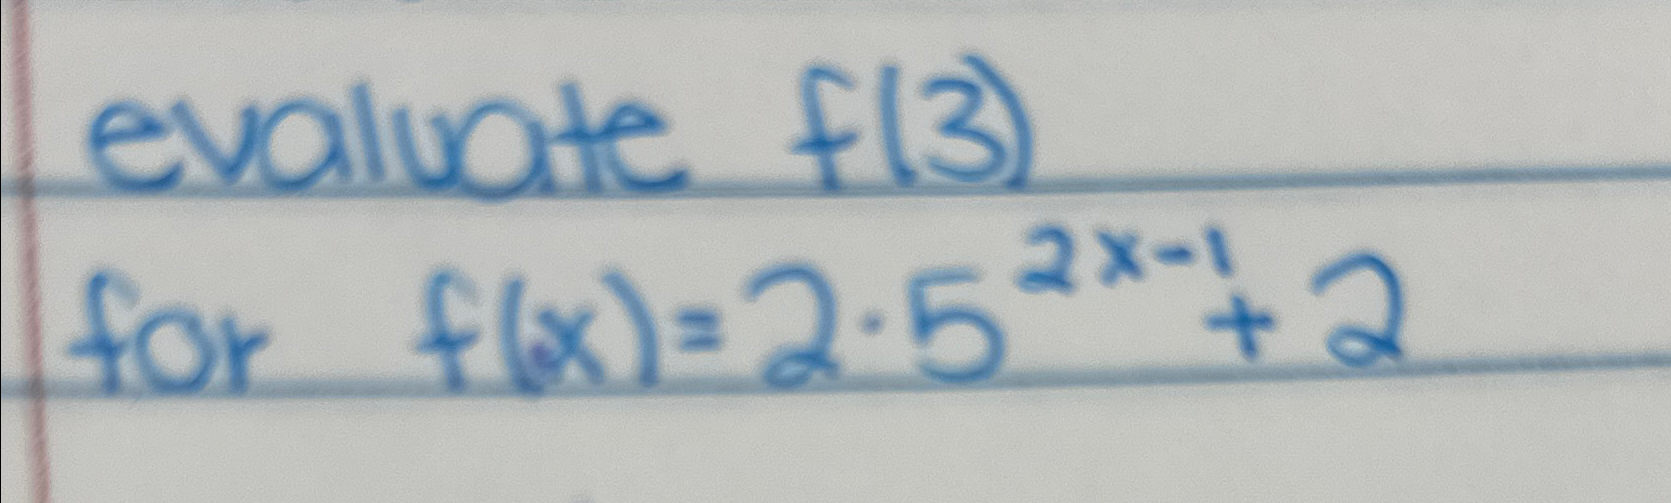 evaluate f(3)
for f(x)=2·5^{2x-1}+2